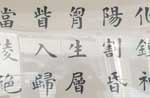 化鍾神
陽割昏
胷生層
眥入歸
當凌絕